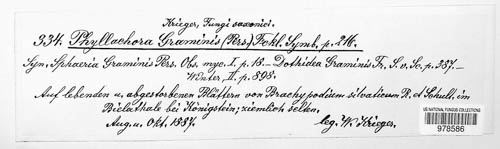 Krieger, Fungi saxonici.
334. Phyllachora Graminis (Pers.) Fckl. Symb. p. 216.
Syn. Sphaeria Graminis Pers. Obs. myc. I. p. 18. – Dothidea Graminis Fr. S. v. Sc. p. 387. –
Winter, II. p. 898.
Auf lebenden u. abgestorbenen Blättern von Brachypodium silvaticum R. et Schult. im
Bielathale bei Königstein; ziemlich selten.
Aug. u. Okt. 1887. leg. W. Krieger.
US NATIONAL FUNGUS COLLECTIONS
978586